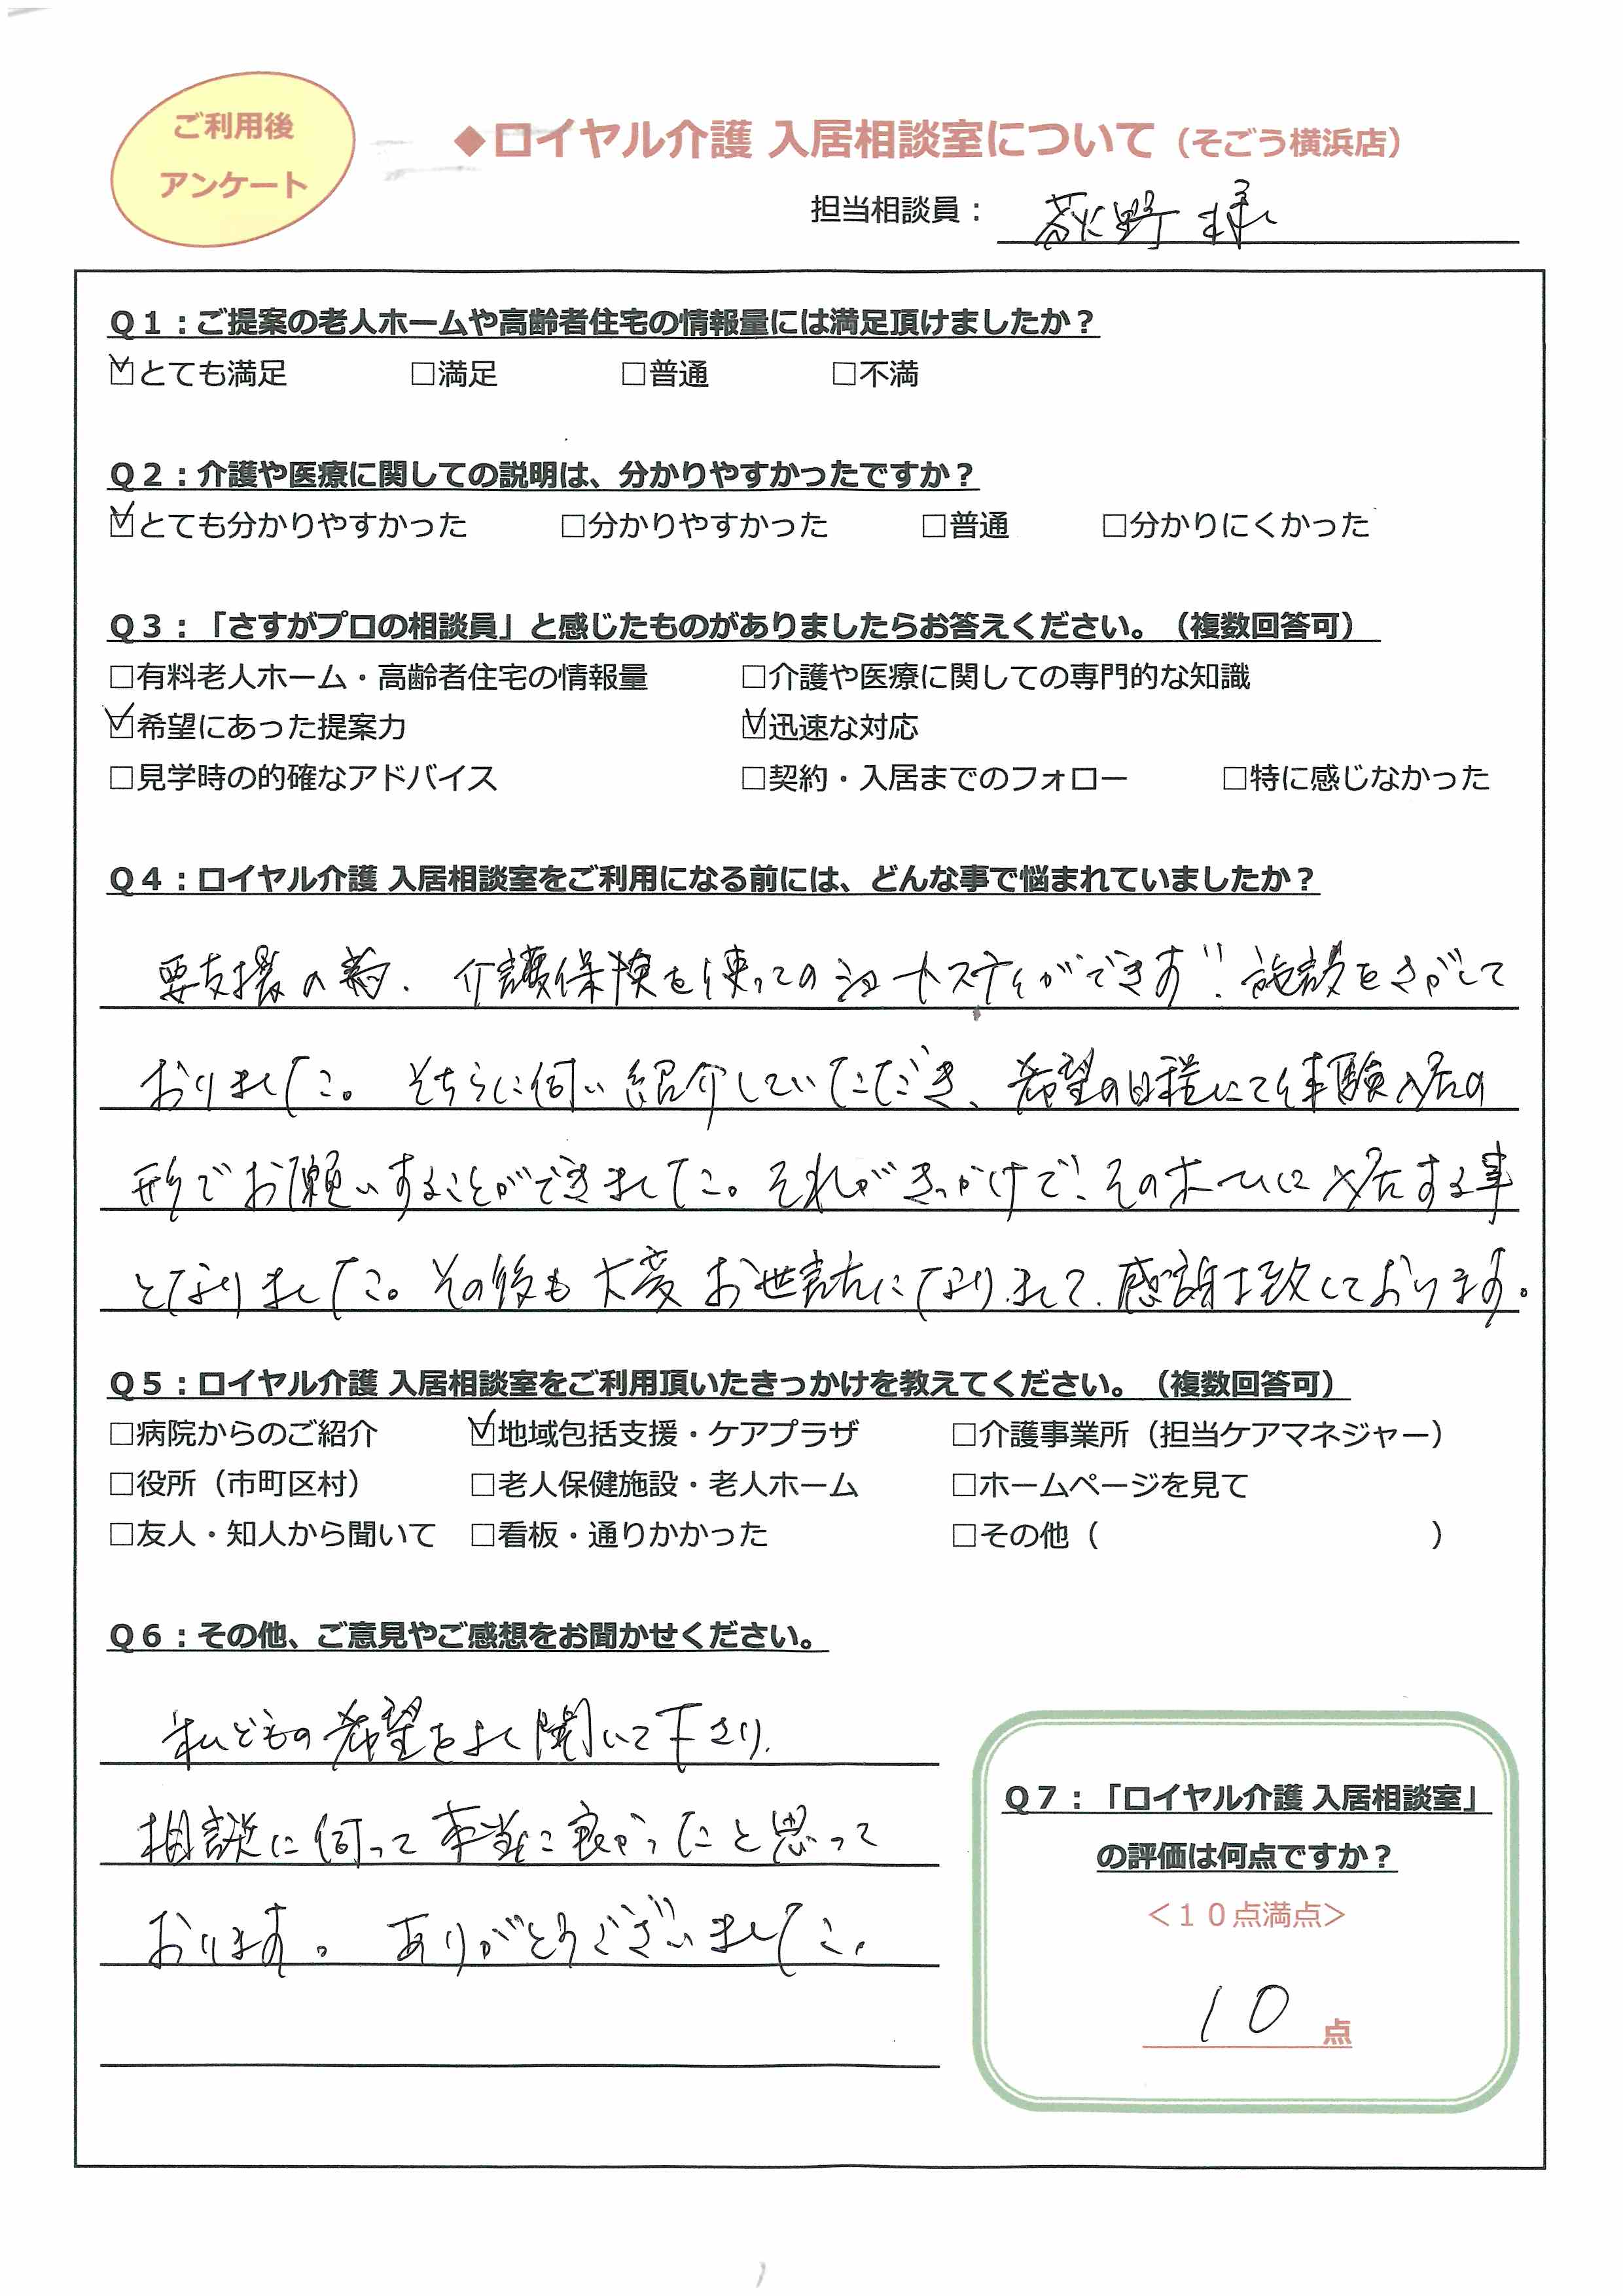 ご利用後
アンケート
◆ロイヤル介護 入居相談室について（そごう横浜店）
担当相談員： 荻野様
Q1：ご提案の老人ホームや高齢者住宅の情報量には満足頂けましたか？
☑とても満足 □満足 □普通 □不満
Q2：介護や医療に関しての説明は、分かりやすかったですか？
☑とても分かりやすかった □分かりやすかった □普通 □分かりにくかった
Q3：「さすがプロの相談員」と感じたものがありましたらお答えください。（複数回答可）
□有料老人ホーム・高齢者住宅の情報量 □介護や医療に関しての専門的な知識
☑希望にあった提案力 ☑迅速な対応
□見学時の的確なアドバイス □契約・入居までのフォロー □特に感じなかった
Q4：ロイヤル介護 入居相談室をご利用になる前には、どんな事で悩まれていましたか？
要支援の為、介護保険を使ってのショートステイができず、施設をさがして
おりました。そちらに伺い紹介していただき、希望の日程にて体験入居の
形でお願いすることができました。それがきっかけで、そのホームに入居する事
となりました。その後も大変お世話になりまして、感謝致しております。
Q5：ロイヤル介護 入居相談室をご利用頂いたきっかけを教えてください。（複数回答可）
□病院からのご紹介 ☑地域包括支援・ケアプラザ □介護事業所（担当ケアマネジャー）
□役所（市町区村） □老人保健施設・老人ホーム □ホームページを見て
□友人・知人から聞いて □看板・通りかかった □その他（ ）
Q6：その他、ご意見やご感想をお聞かせください。
私どもの希望をよく聞いて下さり、
相談に伺って本当に良かったと思って
おります。ありがとうございました。
Q7：「ロイヤル介護 入居相談室」
の評価は何点ですか？
＜10点満点＞
10 点